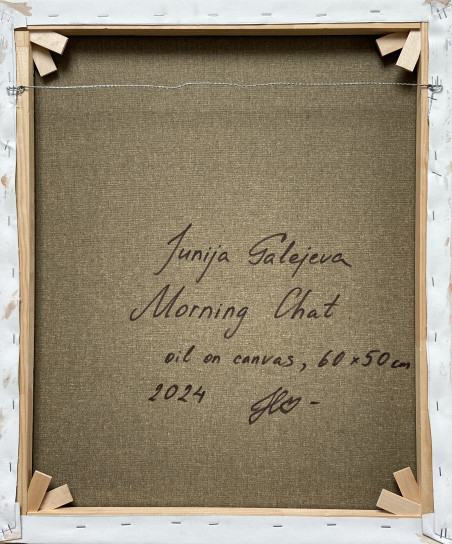 Junija Galejeva
Morning Chat
oil on canvas, 60 x 50 cm
2024